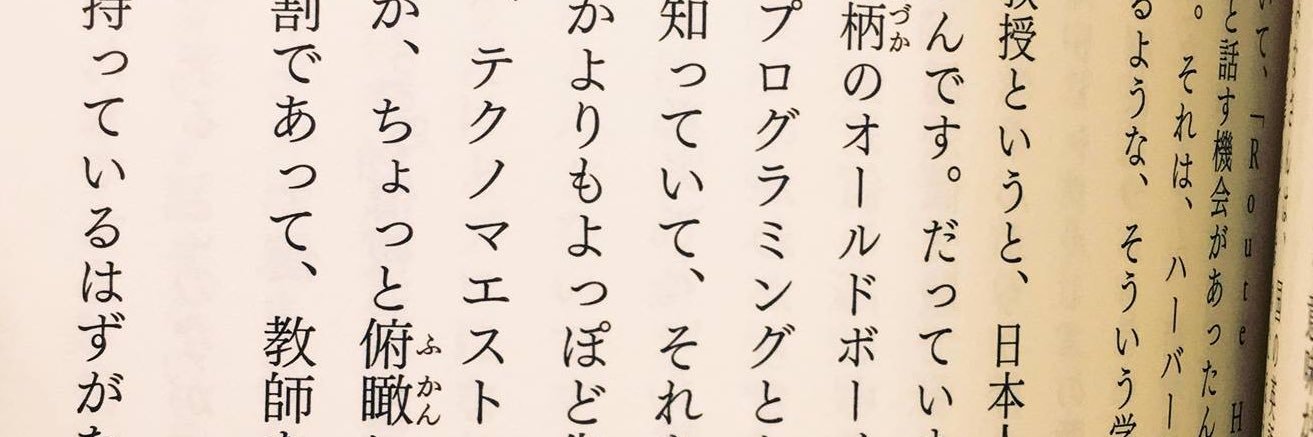 いて、「Route H
と話す機会があったん
。それは、ハーバー
るような、そういう学
教授というと、日本
んです。だってい
柄のオールドボー
づか
プログラミングと
知っていて、それ
かよりもよっぽど
、テクノマエスト
か、ちょっと俯瞰
ふかん
割であって、教師
持っているはずが